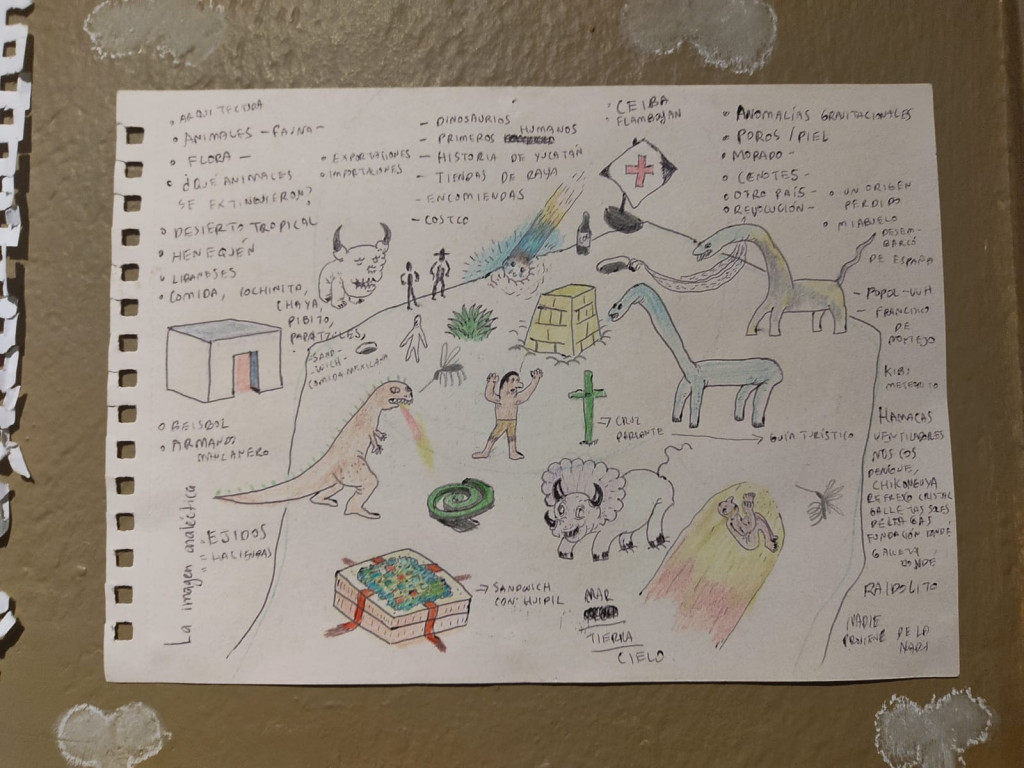 ARQUITECTURA
ANIMALES - FAUNA -
FLORA -
¿QUÉ ANIMALES
SE EXTINGUIERON?
DESIERTO TROPICAL
HENEQUÉN
LIBANESES
COMIDA, COCHINITO,
CHAYA,
PIBITO,
PAPATZULES,
SAND-
WICH
BEISBOL
ARMANDO
MANZANERO
EXPORTACIONES
IMPORTACIONES
DINOSAURIOS
PRIMEROS HUMANOS
HISTORIA DE YUCATÁN
TIENDAS DE RAYA
ENCOMIENDAS
COSTCO
CEIBA
FLAMBOYAN
ANOMALÍAS GRAVITACIONALES
POROS / PIEL
MORADO -
CENOTES -
OTRO PAÍS -
REVOLUCIÓN -
UN ORIGEN
PERDIDO
MI ABUELO
DESEM-
BARCÓ
DE ESPAÑA
POPOL-VUH
FRANCISCO
DE
MONTEJO
METEORITO
HAMACAS
VENTILADORES
DENGUE,
CHIKUNGUYA
REFRESCO CRISTAL
DELTA GAS
FUNDACIÓN DONDE
GALLETA
DONDE
RAIDOLITO
NADIE
PROVIENE DE LA
NADA
CRUZ
PARLANTE
GUÍA TURÍSTICO
La imagen analéctica
EJIDOS
HACIENDAS
SANDWICH
CON HUIPIL
MAR
TIERRA
CIELO